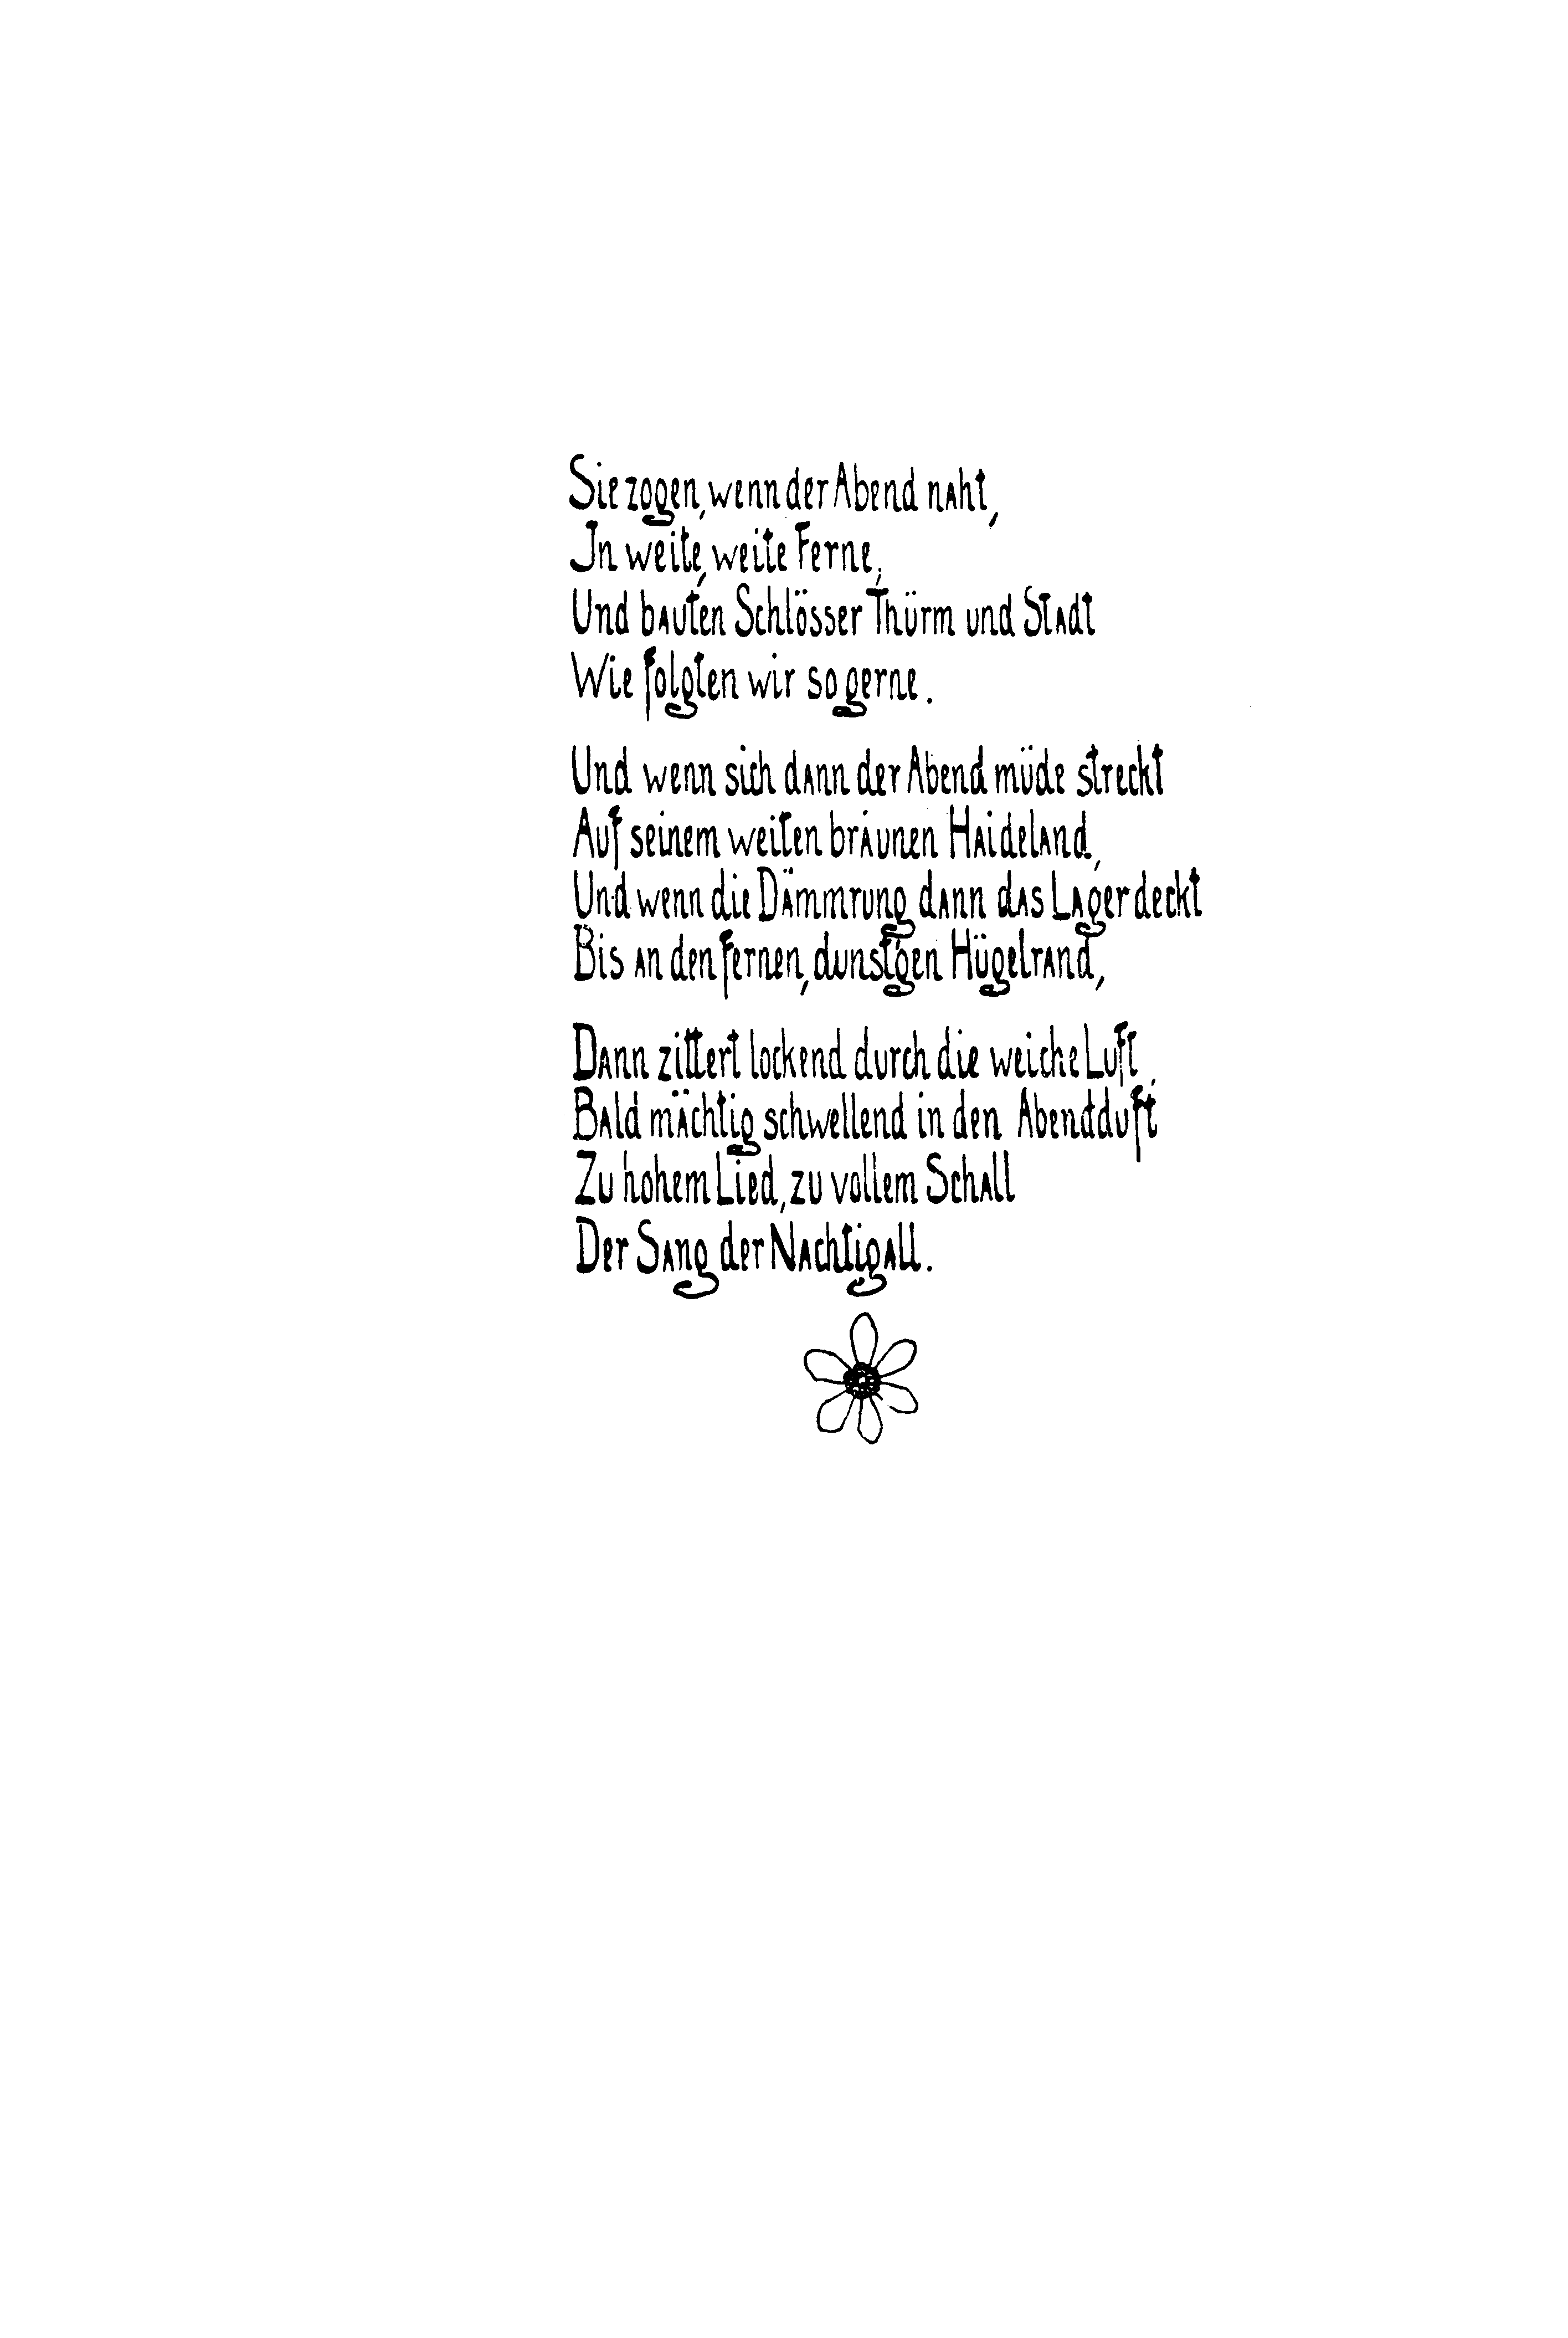 Sie zogen, wenn der Abend naht,
In weite, weite Ferne,
Und bauten Schlösser Thürm und Stadt
Wie folgten wir so gerne.
Und wenn sich dann der Abend müde streckt
Auf seinem weiten braunen Haideland,
Und wenn die Dämmrung dann das Lager deckt
Bis an den fernen, dunst'gen Hügelrand,
Dann zittert lockend durch die weiche Luft,
Bald mächtig schwellend in den Abendduft
Zu hohem Lied, zu vollem Schall
Der Sang der Nachtigall.